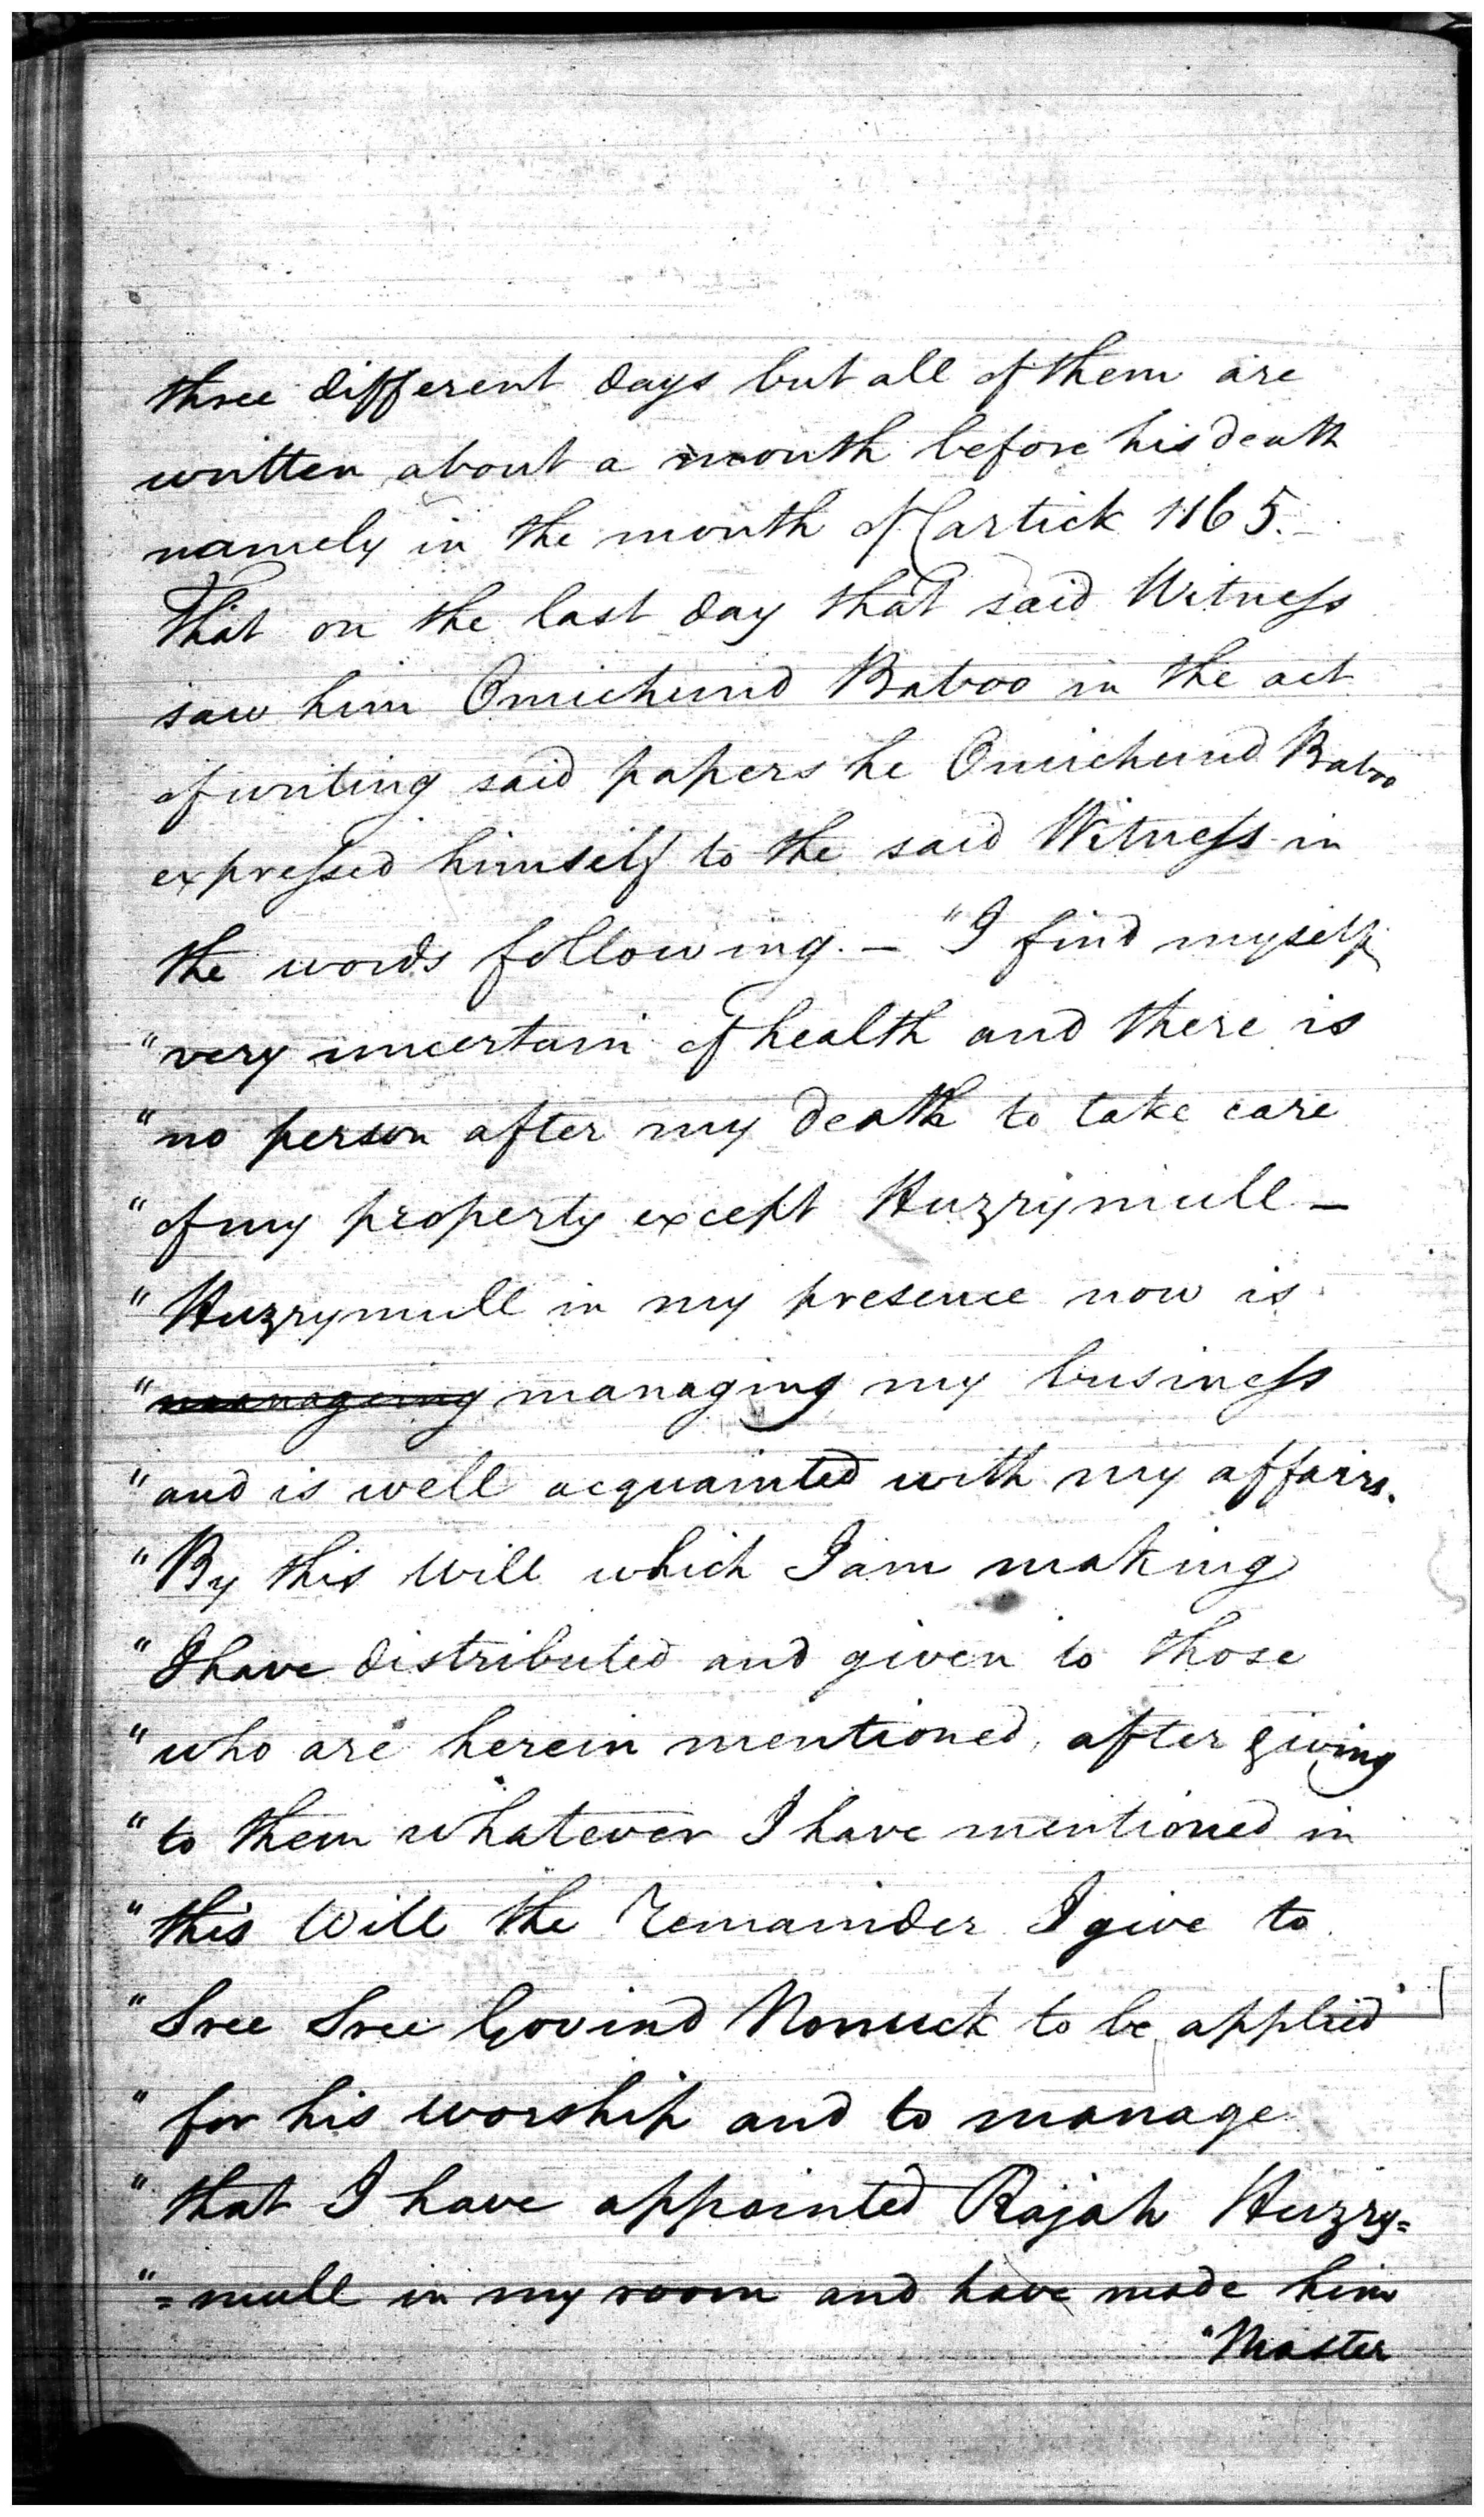 three different days but all of them are
written about a month before his death
namely in the month of Cartick 1165.
That on the last day that said Witness
saw him Omichund Baboo in the act
of writing said papers he Omichund Baboo
expressed himself to the said Witness in
the words following. — "I find myself
"very uncertain of health and there is
"no person after my death to take care
"of my property except Huzrymull —
"Huzrymull in my presence now is
"manageing managing my business
"and is well acquainted with my affairs.
"By this Will which I am making
"I have distributed and given to those
"who are herein mentioned, after giving
"to them whatever I have mentioned in
"this Will the remainder I give to
"Sree Sree Govind Nonuck to be applied
"for his worship and to manage
"that I have appointed Rajah Huzry=
"=mull in my room and have made him
"Master